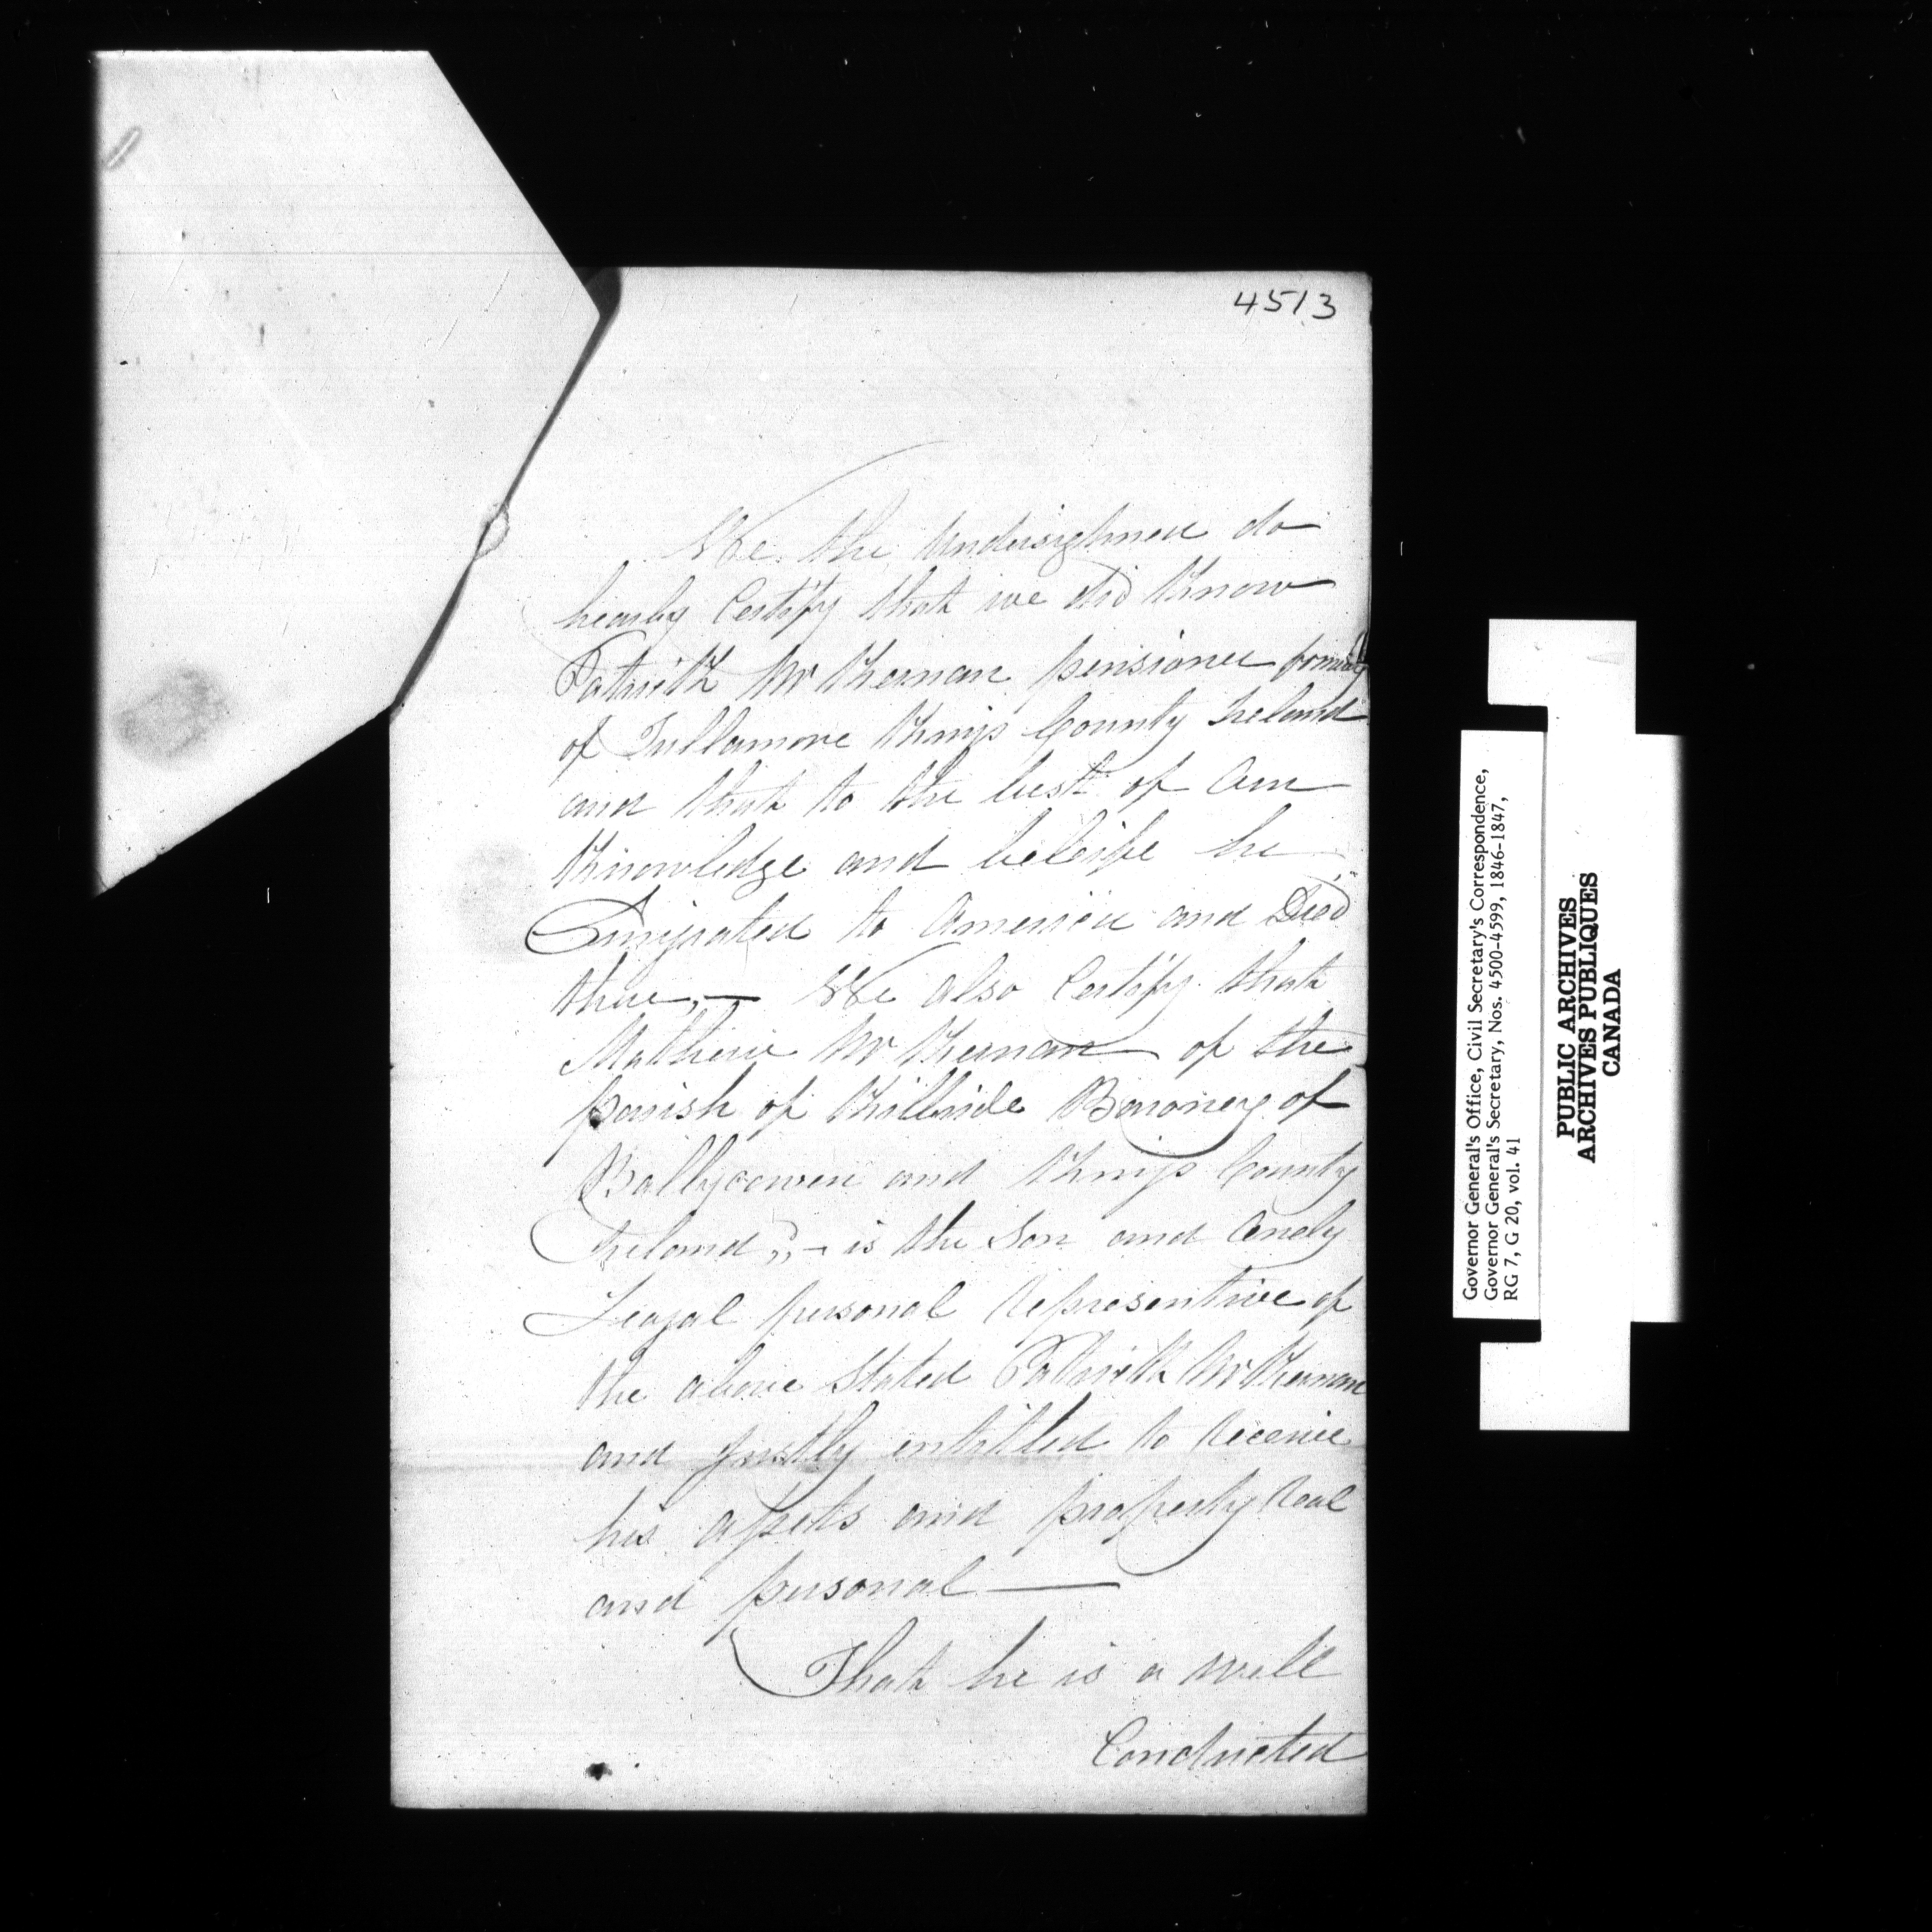 4513
We the Undersighned do
hearby Certify that we did Know
Patrick Mc Kernan pensioner formerly
of Tullamore Kings County Ireland
and that to the best of Our
Knowledge and beleife he
Emigrated to America and Died
there,— We also Certify that
Mathew Mc Kernan of the
Parish of Killbride Baroney of
Ballycowen and Kings County
Ireland,,— is the Son and Onely
Leagal personal Representive of
the above Stated Patrick Mc Kernan
and Justly entitled to Receive
his assets and property Real
and personal—
That he is a well
Conducted
Governor General's Office, Civil Secretary's Correspondence,
Governor General's Secretary, Nos. 4500-4599, 1846-1847,
RG 7, G 20, vol. 41
PUBLIC ARCHIVES
ARCHIVES PUBLIQUES
CANADA